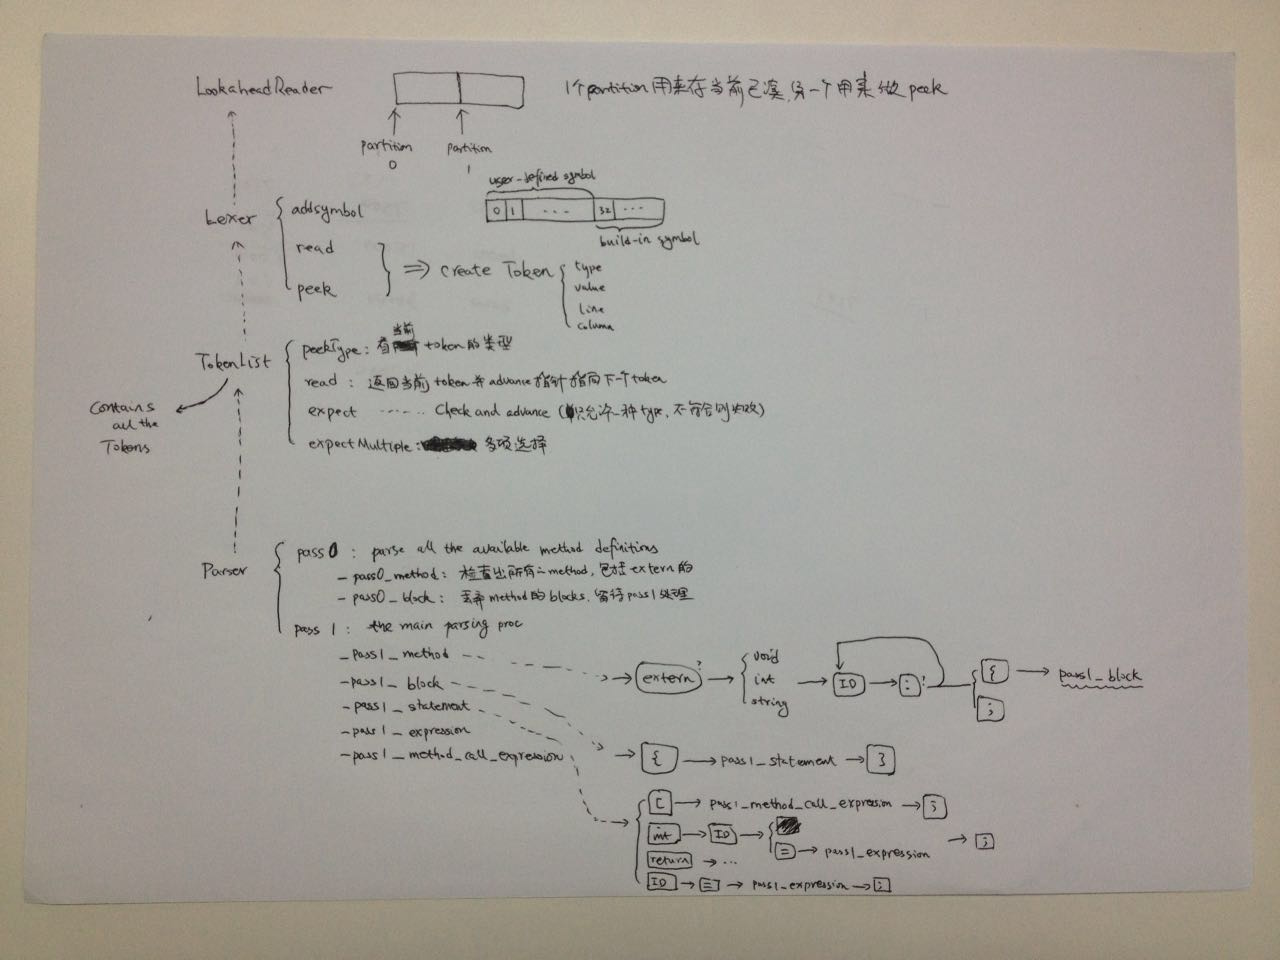 LookaheadReader
1个partition用来存当前已读,另一个用来做peek
partition 0
partition 1
user-defined symbol
Lexer
addsymbol
0 1 ... 32 ...
build-in symbol
read
peek
=> create Token
type
value
line
column
TokenList
peekType: 看当前token的类型
read: 返回当前token并advance指针指向下一个token
expect ...... check and advance (只允许一种type,不符合则失败)
expectMultiple: 多项选择
contains
all the
Tokens
Parser
pass0: parse all the available method definitions
- pass0_method: 检查出所有的method,包括extern的
- pass0_block: 丢弃method的blocks,留待pass1处理
pass1: the main parsing proc
- pass1_method
- pass1_block
- pass1_statement
- pass1_expression
- pass1_method_call_expression
extern ?
void
int
string
ID
: ?
{
pass1_block
;
{ pass1_statement }
[ pass1_method_call_expression ;
int ID
= pass1_expression ;
return ...
ID = pass1_expression ;